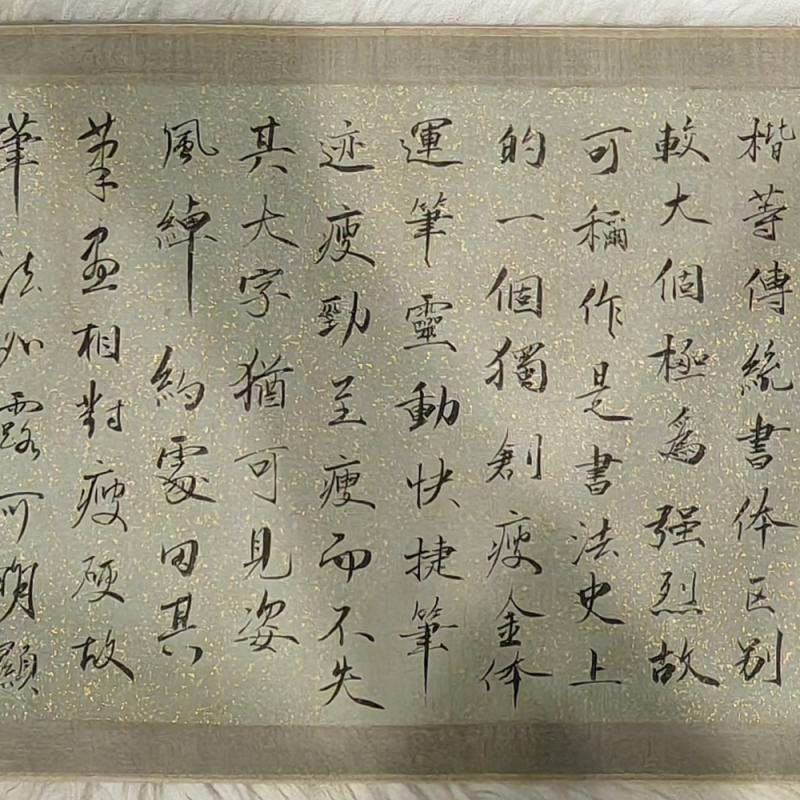 楷等傳統書体区别
較大個極為强烈故
可稱作是書法史上
的一個獨創瘦金体
運筆靈動快捷筆
迹瘦勁至瘦而不失
其大字猶可見姿
風綽約處因其
筆画相對瘦硬故
筆法如露可明顯